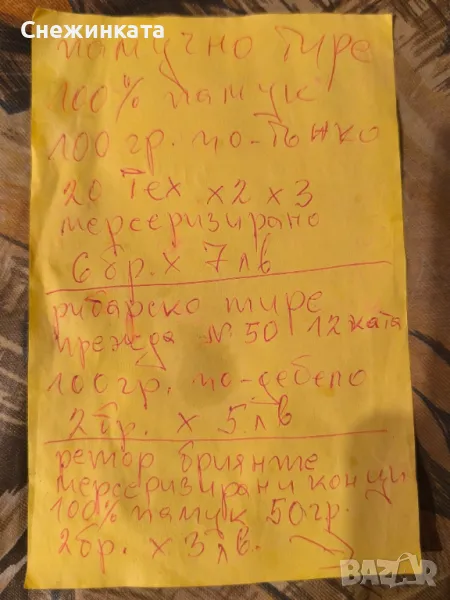 Снежинката
памучно тире
100% памук
100 гр. по-тънко
20 Тех х2 х3
мерсеризирано
6 бр. х 7 лв
рибарско тире
прежда № 50 12 ката
100 гр. по-дебело
2 бр. х 5 лв
ретор бриянте
мерсеризирани конци
100% памук 50 гр.
2 бр. х 3 лв.
BAZAR